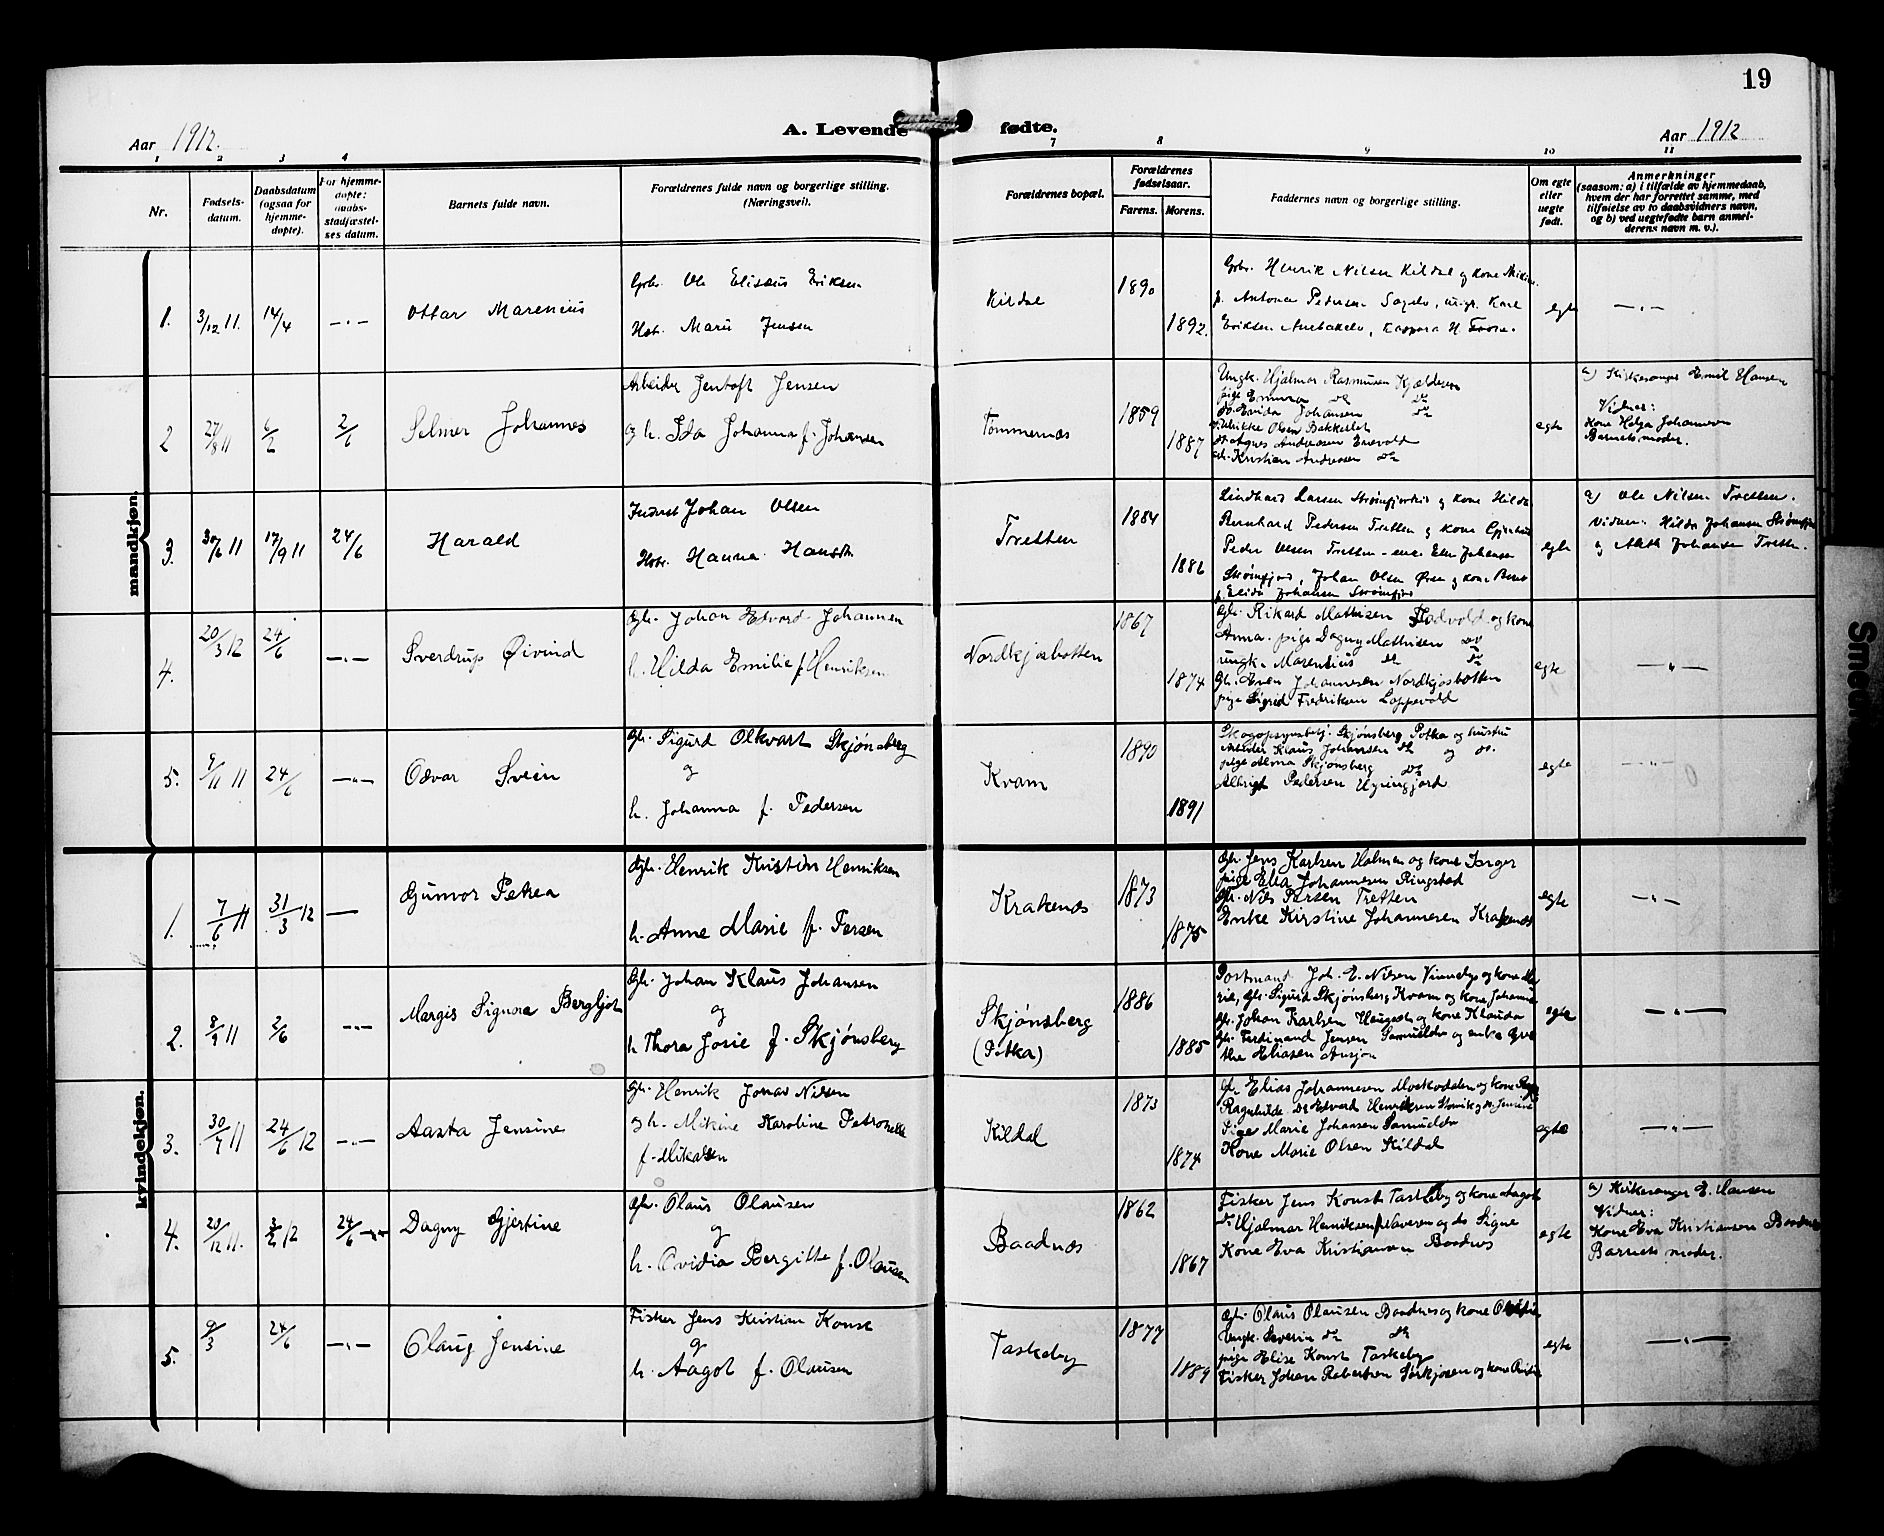 19
A. Levende fødte.
Aar 1912.
Aar 1912
1 2 3 4
7 8 9 10 11
Nr.
Fødsels-
datum.
Daabsdatum
(ogsaa for
hjemme-
døpte).
For hjemme-
døpte:
daabs-
stadfæstel-
ses datum.
Barnets fulde navn.
Forældrenes fulde navn og borgerlige stilling.
(Næringsvei).
Forældrenes bopæl.
Forældrenes
fødselsaar.
Farens. Morens.
Faddernes navn og borgerlige stilling.
Om egte
eller
uegte
født.
Anmerkninger
(saasom: a) i tilfælde av hjemmedaab,
hvem der har forrettet samme, med
tilføielse av to daabsvidners navn,
og b) ved uegtefødte barn anmel-
derens navn m. v.).
mandkjøn.
1. 3/12 11. 14/4 —"— Ottar Marenius
Gbr. Ole Elisæus Eriksen
Hst. Marie Jensen
Kildal
1890
1892.
Gbr. Henrik Nilsen Kildal og kone
p. Antona Pedersen ungk. Karl
Eriksen
egte —"—
2 27/8 11 6/2 2/6 Selmer Johannes
Arbeider Jentoft Jensen
og h. Ida Johanna f. Johansen
Tømmernæs
1859
1887
Ungk. Hjalmar Rasmussen
pige Emma do do
do. Johansen do
Olsen
do Agnes Andreassen
Kristian Andreassen do
egte
a) Kirkesanger Emil Hansen
Vidner:
Kone Helga Johannesen
Barnets moder.
3. 30/6 11 17/9 11 24/6 Harald
Inderst Johan Olsen
Hst. Hanna Hansdt
Tretten
1884
1886
Lindhard Larsen og kone Hilda
Bernhard Pedersen Tretten og kone
Peder Olsen Tretten - Johansen
Strømfjord, Johan Olsen og kone
p. Elida Johansen Strømfjord
egte
a) Ole Nilsen Tretten.
Vidner: Hilda Johansen
og Johansen Tretten.
4. 20/3 12 24/6 —"— Sverdrup Øivind
Gbr. Johan Edvard Johannesen
h. Hilda Emilie f. Henriksen
Nordkjosbotten
1867
1874
Gbr. Rikard Mathisen og kone
Anna. pige Dagny Mathisen do
ungk. Marentius do do
Gbr. Even Johannesen Nordkjosbotten
pige Sigrid Fredriksen Loppevold
egte —"—
5. 9/11 11 24/6 —"— Odvar Svein
Gbr. Sigurd Olkvart Skjønsberg
og
h. Johanna f. Pedersen
Kvam
1890
1891
Skogopsynsbetj. Skjønsberg Potka og hustru
Arbeider Klaus Johansen do og do.
pige Alma Skjønsberg do
Albrigt Pedersen
egte —"—
kvindekjøn.
1. 7/6 11 31/3 12 — Gunvor Petrea
Gbr. Henrik Kristian Henriksen
h. Anne Marie f. Persen
Krakenæs
1873
1875
Gbr. Jens Karlsen Holmen og kone Inger
pige Ella Johannesen Ringstad
Gbr. Nils Persen Tretten
Enke Kirstine Johannesen Krakenæs
egte —"—
2. 8/9 11 2/6 —"— Margis Signora Bergljot
Gbr. Johan Klaus Johansen
og
h Thora Josie f. Skjønsberg
Skjønsberg
(Potka)
1886
1885
Postmand Joh. E. Nilsen og kone Ma-
rie, Gbr. Sigurd Skjønsberg Kvam og kone Johanna
Gbr. Johan Karlsen og kone Klauda
Gbr. Ferdinand Jensen og enke
Eliasen
egte —"—
3. 30/7 11 24/6 12 —"— Aasta Jensine
Gbr. Henrik Jonas Nilsen
og h. Mikine Karoline Petronelle
f. Mikalsen
Kildal
1873
1874
Gbr. Elias Johannesen og kone
Ragnhilde. Do Edvard Henriksen og do Jensine
Pige Marie Johansen
Kone Marie Olsen Kildal
egte —"—
4. 20/12 11. 3/2 12 24/6 —"— Dagny Gjertine
Gbr. Olaus Olausen
og
h. Ovidia Bergitte f. Olausen
Baadnæs
1862
1867
Fisker Jens Konst Taskeby og kone Aagot
do Hjalmar Henriksen og do Signe
Kone Eva Kristiansen Baadnes
egte
a) Kirkesanger E. Hansen
Vidner:
Kone Eva Kristiansen Baadnes
Barnets moder.
5. 9/3 24/6 —"— Olaug Jensine
Fisker Jens Kristian Konst
og
h. Aagot f. Olausen
Taskeby
1877
1889
Gbr. Olaus Olausen Baadnes og kone
Ungk. Severin do do
pige Elise Konst Taskeby
Fisker Johan Robertsen Sørkjosen og kone
egte —"—